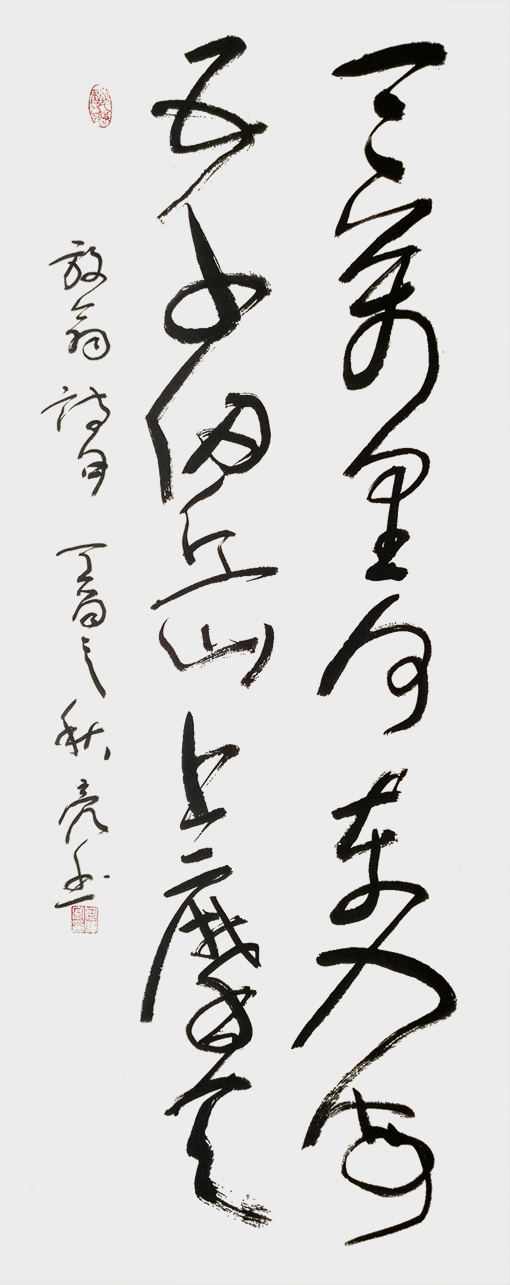 三萬里河東入海
五千仞岳上摩天
放翁詩句 丁酉之秋 亮書